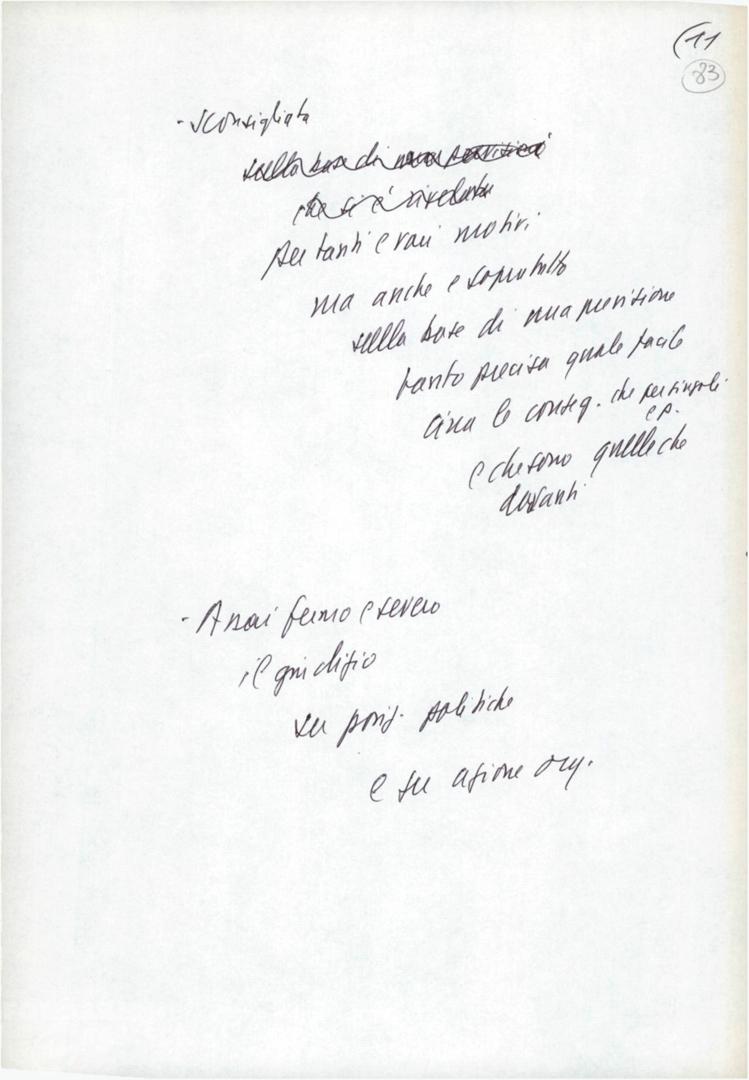 (11
83
- Sconsigliata
sulla base di una previsione
che si è rivelata
per tanti e vari motivi
ma anche e soprattutto
sulla base di una previsione
tanto precisa quale facile
circa le conseg. che per singoli
e p.
e che sono quelle che
davanti
- Assai fermo e severo
il giudizio
su posiz. politiche
e su azione org.